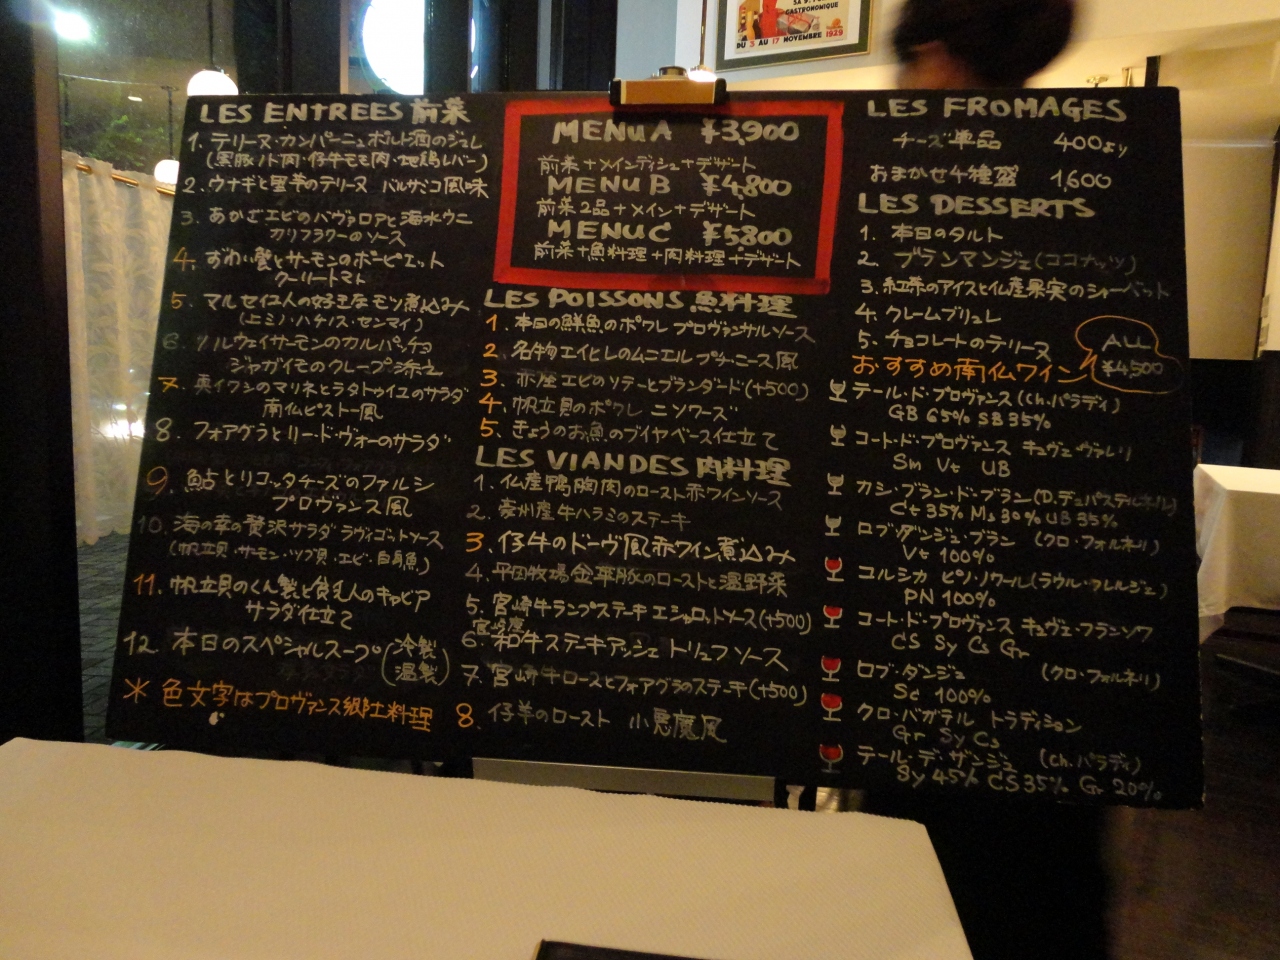 GASTRONOMIQUE
DU 3 AU 17 NOVEMBRE 1929
LES ENTREES 前菜
1. テリーヌ・カンパーニュ ポルト酒のジュレ
(黒豚ノド肉・仔牛モモ肉・地鶏レバー)
2. ウナギと里芋のテリーヌ バルサミコ風味
3. あかざエビのババロアと海水ウニ
カリフラワーのソース
4. ずわい蟹とサーモンのポーピエット
クーリートマト
5. マルセイユ人の好きなモツ煮込み
(上ミノ・ハチノス・センマイ)
6. ノルウェイサーモンのカルパッチョ
ジャガイモのクレープ添え
7. 真イワシのマリネとラタトゥイユのサラダ
南仏ピストー風
8. フォアグラとリー・ド・ヴォーのサラダ
9. 鮎とリコッタチーズのファルシ
プロヴァンス風
10. 海の幸の贅沢サラダ ラヴィゴットソース
(帆立貝・サーモン・ツブ貝・エビ・白身魚)
11. 帆立貝のくん製と貧乏人のキャビア
サラダ仕立て
12. 本日のスペシャルスープ (冷製
温製)
* 色文字はプロヴァンス郷土料理
MENU A ¥3,900
前菜+メインディシュ+デザート
MENU B ¥4,800
前菜2品+メイン+デザート
MENU C ¥5800
前菜+魚料理+肉料理+デザート
LES POISSONS 魚料理
1. 本日の鮮魚のポワレ プロヴァンサルソース
2. 名物エイヒレのムニエル プチ・ニース風
3. 赤座エビのソテーとブランダード (+500)
4. 帆立貝のポワレ ニソワーズ
5. きょうのお魚のブイヤベース仕立て
LES VIANDES 肉料理
1. 仏産鴨胸肉のロースト赤ワインソース
2. 豪州産牛ハラミのステーキ
3. 仔牛のドーヴ風赤ワイン煮込み
4. 平田牧場金華豚のローストと温野菜
5. 宮崎牛ランプステーキ エシャロットソース (+500)
宮崎産
6. 和牛ステーキアッシェ トリュフソース
7. 宮崎牛ロースとフォアグラのステーキ (+500)
8. 仔羊のロースト 小悪魔風
LES FROMAGES
チーズ単品 400より
おまかせ4種盛 1,600
LES DESSERTS
1. 本日のタルト
2. ブランマンジェ (ココナッツ)
3. 紅茶のアイスと仏産果実のシャーベット
4. クレームブリュレ
5. チョコレートのテリーヌ
おすすめ南仏ワイン
ALL
¥4,500
テール・ド・プロヴァンス (Ch.パラディ)
GB 65% SB 35%
コート・ド・プロヴァンス キュヴェ・ヴァレリ
Sm Vt UB
カシ・ブラン・ド・ブラン
Ct 35% Ms 30% UB 35%
ロブ・ダンジュ・ブラン (クロ・フォルネリ)
Vt 100%
コルシカ ピノ・ノワール (ラウル・クレルジェ)
PN 100%
コート・ド・プロヴァンス キュヴェ・フランソワ
CS Sy Cs Gr
ロブ・ダンジュ (クロ・フォルネリ)
Sc 100%
クロ・バガテル トラディション
Gr Sy Cs
テール・デ・ザンジュ (Ch.パラディ)
Sy 45% CS 35% Gr 20%